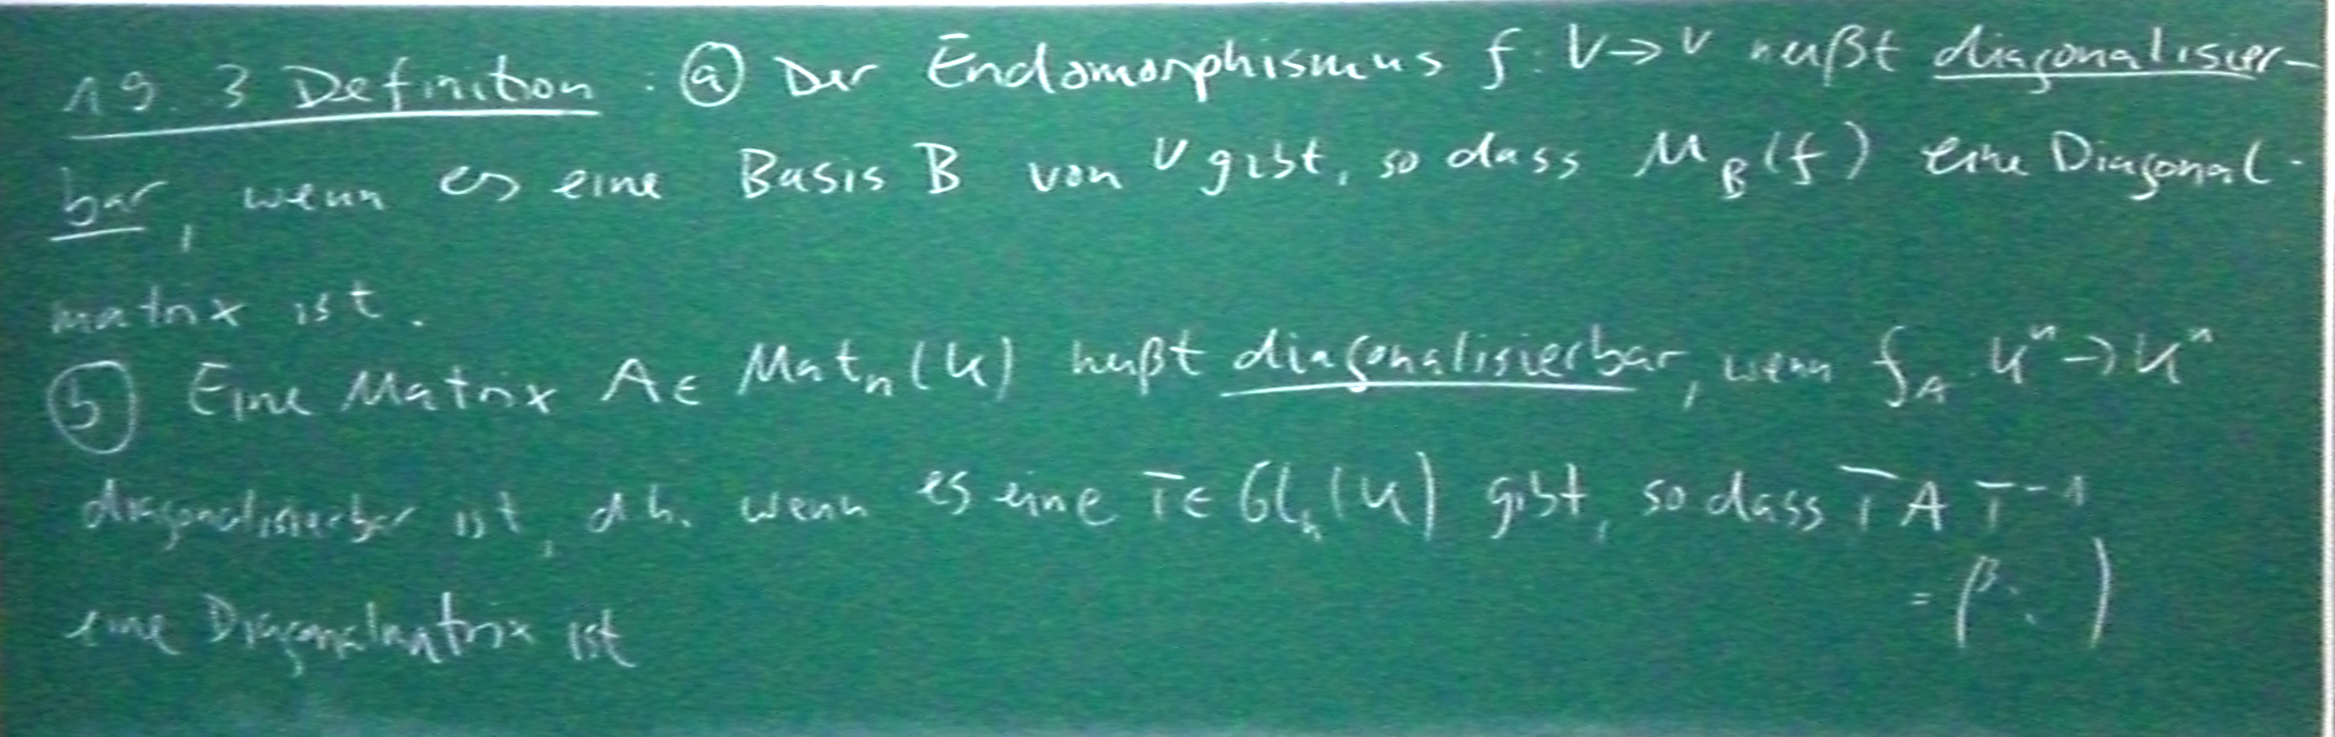 19.3 Definition: ⓐ Der Endomorphismus f: V → V heißt diagonalisier-
bar, wenn es eine Basis B von V gibt, so dass M_B(f) eine Diagonal-
matrix ist.
ⓑ Eine Matrix A ∈ Mat_n(K) heißt diagonalisierbar, wenn f_A: K^n → K^n
diagonalisierbar ist, d.h. wenn es eine T ∈ GL_n(K) gibt, so dass T A T^-1
= ( ⋱ )
eine Diagonalmatrix ist